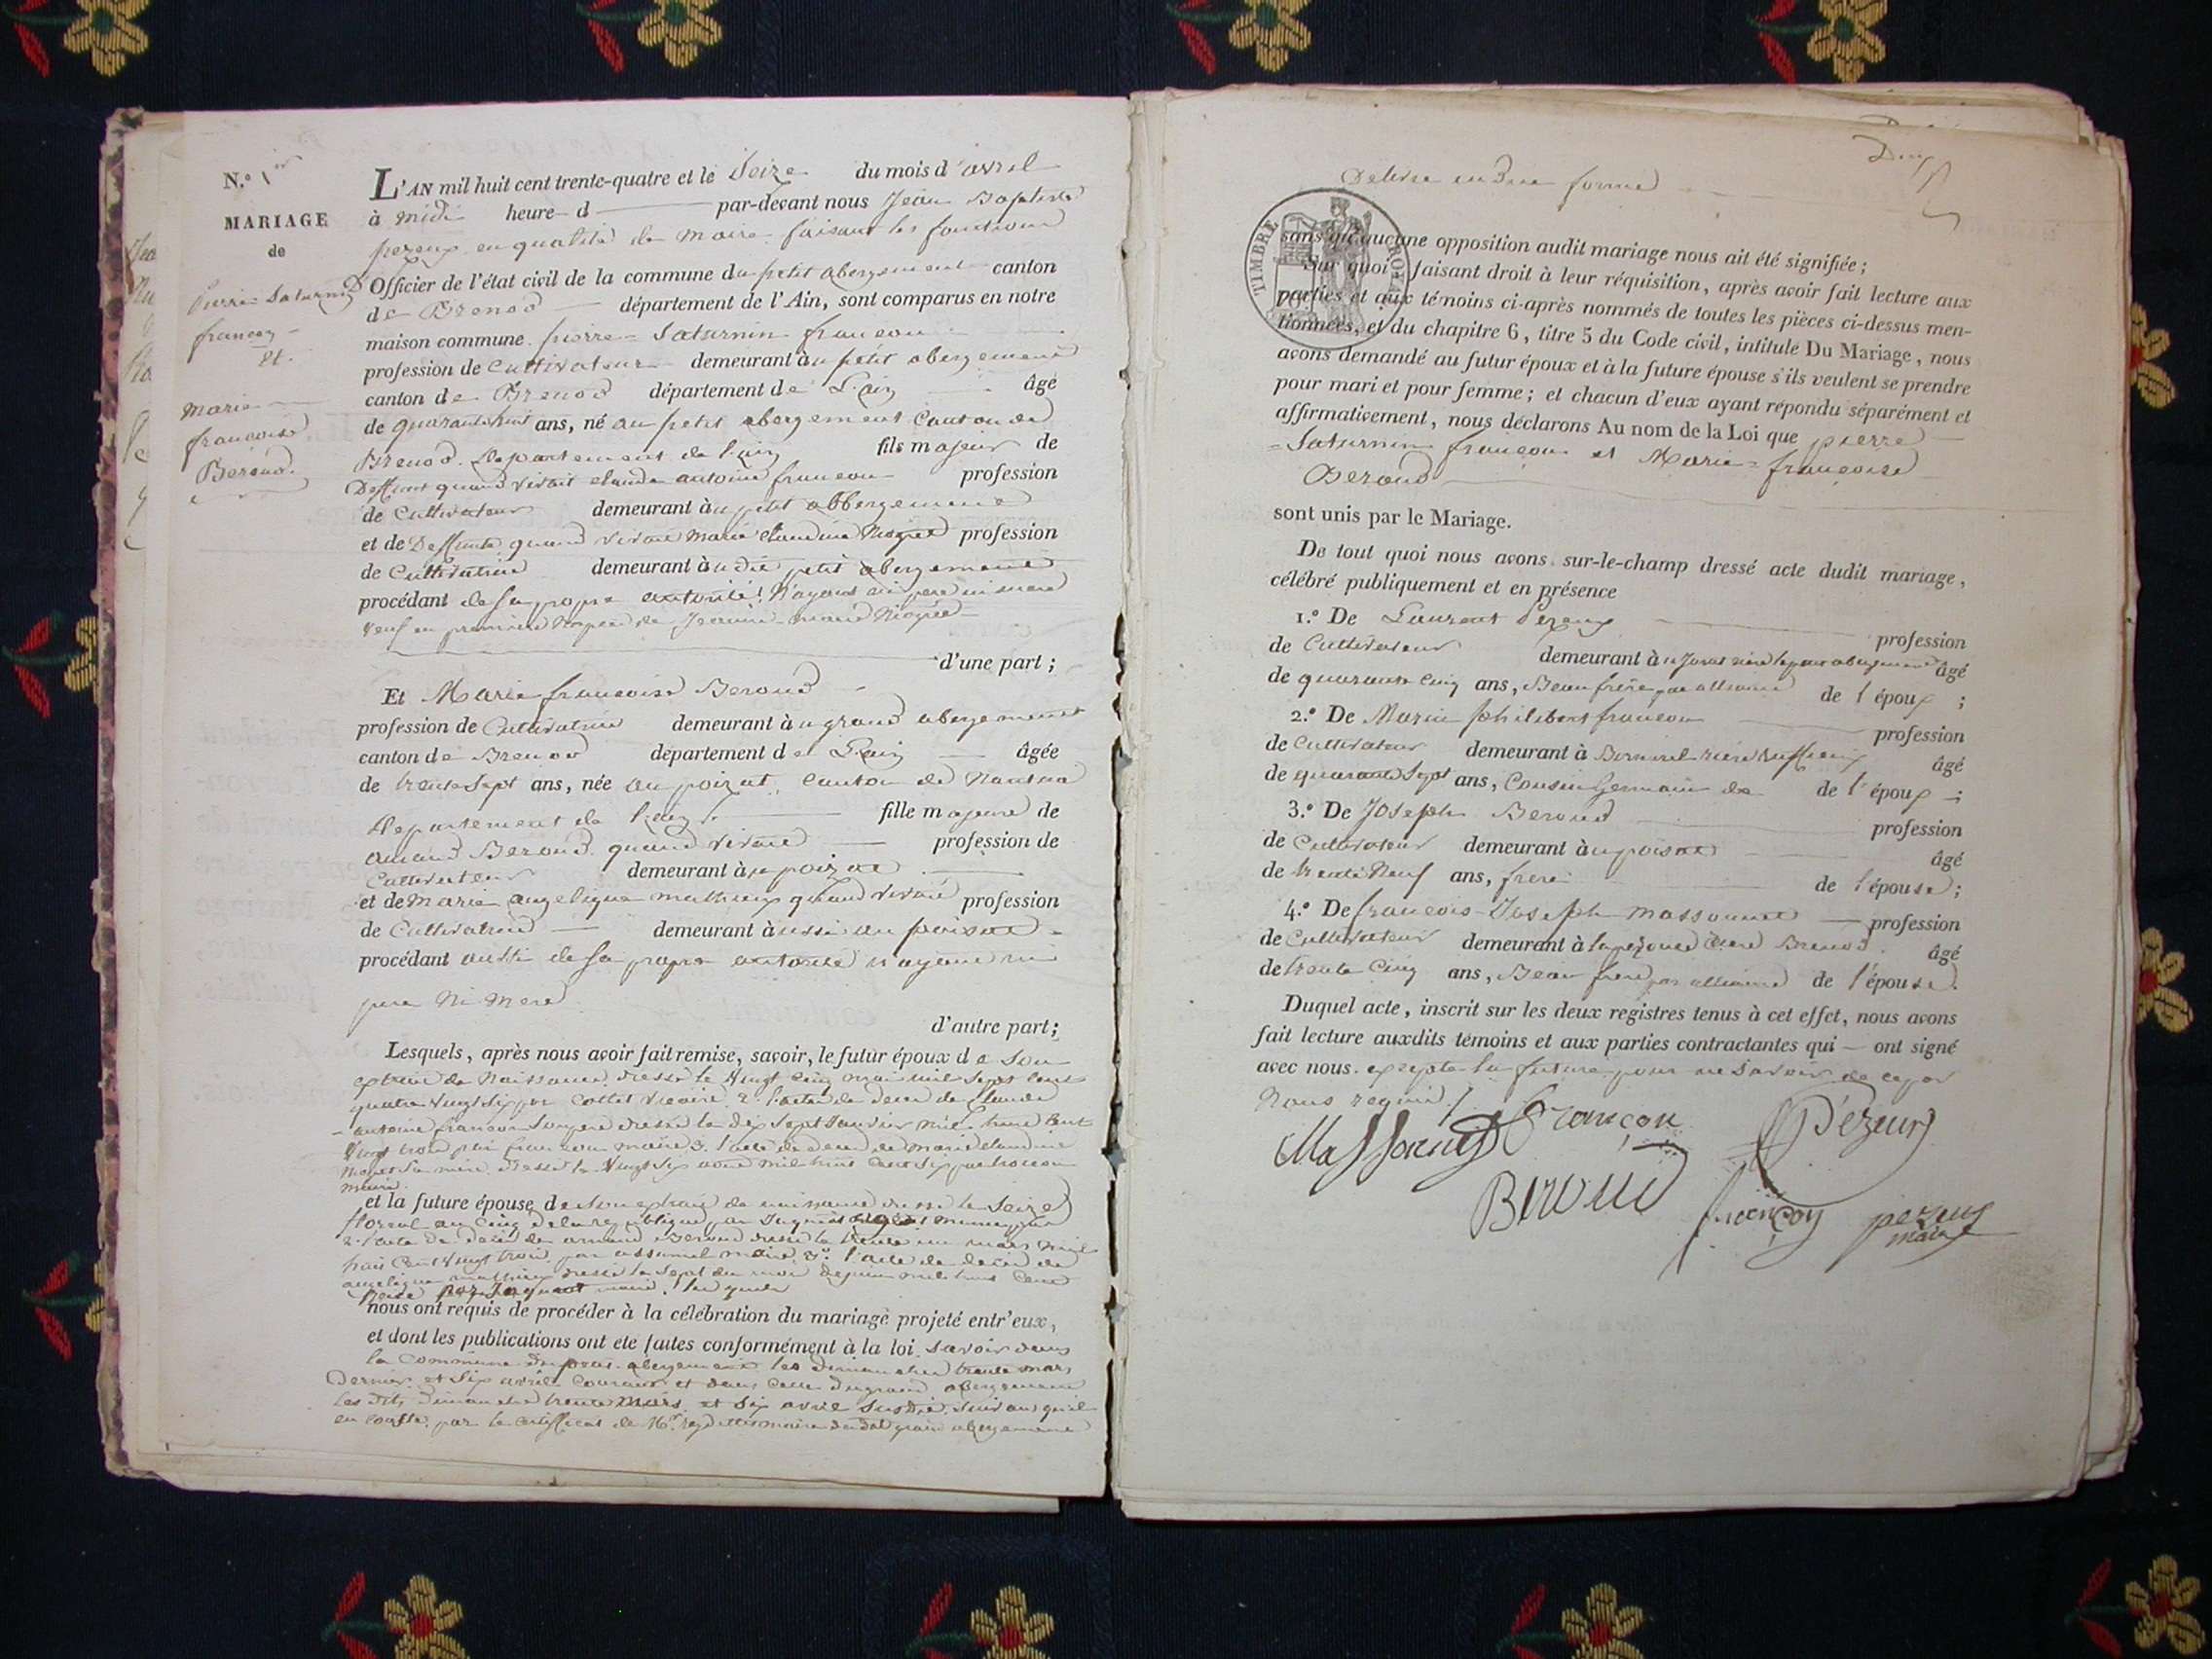 N.º 1er
MARIAGE
de
Pierre Saturnin
françon
Et
Marie
françoise
Beroud.
L'AN mil huit cent trente-quatre et le Seize du mois d'avril
à midi heure d par-devant nous Jean Baptiste
pezeux en qualité de Maire faisant les fonctions
d'Officier de l'état civil de la commune du petit abergement canton
de Brenod département de l'Ain, sont comparus en notre
maison commune pierre Saturnin françon
profession de Cultivateur demeurant au petit abergement
canton de Brenod département de L'ain âgé
de quarante huit ans, né au petit abergement Canton de
Brenod Departement de l'ain fils majeur de
Deffunt quand vivait claude antoine françon profession
de Cultivateur demeurant au petit abbergement
et de Deffunte quand vivait Marie claudine profession
de Cultivatrice demeurant audit petit abergement
procédant de sa propre autorité n'ayant ni pere ni mere
veuf en premiere de Jeanne marie
d'une part ;
Et Marie françoise Beroud
profession de Cultivatrice demeurant au grand abergement
canton de Brenod département de L'ain âgée
de trente Sept ans, née au poizat, canton de Nantua
Departement de l'ain fille majeure de
amand Beroud quand vivait profession de
Cultivateur demeurant au poizat
et de Marie angelique mathieux quand vivait profession
de Cultivatrice demeurant aussi au poizat
procédant aussi de sa propre autorité n'ayant ni
pere Ni Mere
d'autre part ;
Lesquels, après nous avoir fait remise, savoir, le futur époux de son
extrait de Naissance dressé le vingt cinq mai mil sept cent
quatre vingt six par Collet vicaire 2. l'acte de deces de Claude
antoine françon son pere dressé le dix sept Janvier mil huit cent
vingt trois par françon maire 3. l'acte de deces de marie claudine
sa mere dressé le vingt six mil huit cent six par
maire.
et la future épouse de son extrait de naissance dressé le Seize
floreal an cinq de la republique par
2. l'acte de deces de amand Beroud dressé le trente un mars mil
huit cent vingt trois par maire 3.º l'acte de deces de
angelique mathieux dressé le sept du mois de juin mil huit cent
par maire. les quels
nous ont requis de procéder à la célébration du mariage projeté entr'eux,
et dont les publications ont été faites conformément à la loi savoir dans
la commune du petit abergement les dimanches trente mars
dernier et Six avril courant et dans celle du grand abergement
les dits dimanches trente Mars et Six avril susdit, suivant qu'il
en conste par le certifficat de Mr. maire du dit grand abergement
Delivré en Due forme
TIMBRE ROYAL
sans qu'aucune opposition audit mariage nous ait été signifiée ;
Sur quoi faisant droit à leur réquisition, après avoir fait lecture aux
parties et aux témoins ci-après nommés de toutes les pièces ci-dessus men-
tionnées, et du chapitre 6, titre 5 du Code civil, intitulé Du Mariage, nous
avons demandé au futur époux et à la future épouse s'ils veulent se prendre
pour mari et pour femme ; et chacun d'eux ayant répondu séparément et
affirmativement, nous déclarons Au nom de la Loi que pierre
= Saturnin françon et Marie = françoise
Beroud
sont unis par le Mariage.
De tout quoi nous avons sur-le-champ dressé acte dudit mariage,
célébré publiquement et en présence
1.º De Laurent Pezeux profession
de Cultivateur demeurant à petit abergement âgé
de quarante cinq ans, Beau frere par alliance de l'époux ;
2.º De Marin philibert françon profession
de Cultivateur demeurant à âgé
de quarante Sept ans, Cousin Germain de de l'époux ;
3.º De Joseph Beroud profession
de Cultivateur demeurant au poizat âgé
de trente Neuf ans, frere de l'épouse ;
4.º De françois Joseph Massonnet profession
de Cultivateur demeurant à Brenod âgé
de trente Cinq ans, Beau frere par alliance de l'épouse.
Duquel acte, inscrit sur les deux registres tenus à cet effet, nous avons
fait lecture auxdits témoins et aux parties contractantes qui ont signé
avec nous. excepte la future pour ne savoir de ce par
Nous requise
Massonnet Françon Pézeux
Beroud françon pezeux
maire